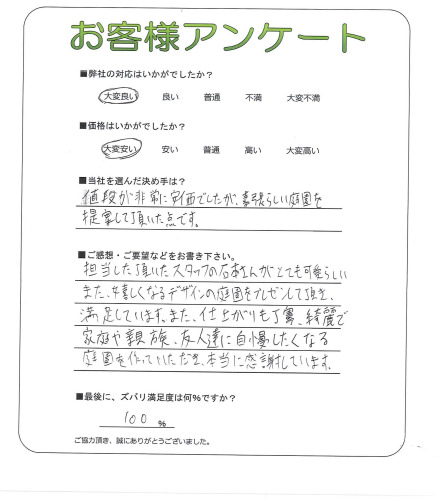 お客様アンケート
■弊社の対応はいかがでしたか？
大変良い 良い 普通 不満 大変不満
■価格はいかがでしたか？
大変安い 安い 普通 高い 大変高い
■当社を選んだ決め手は？
値段が非常に安価でしたが、素晴らしい庭園を
提案して頂いた点です。
■ご感想・ご要望などをお書き下さい。
担当した頂いたスタッフの石本さんがとても可愛らしい
また、嬉しくなるデザインの庭園をプレゼンして頂き、
満足しています。また、仕上がりも丁寧、綺麗で
家庭や親族、友人達に自慢したくなる
庭園を作っていただき、本当に感謝しています。
■最後に、ズバリ満足度は何%ですか？
100 %
ご協力頂き、誠にありがとうございました。